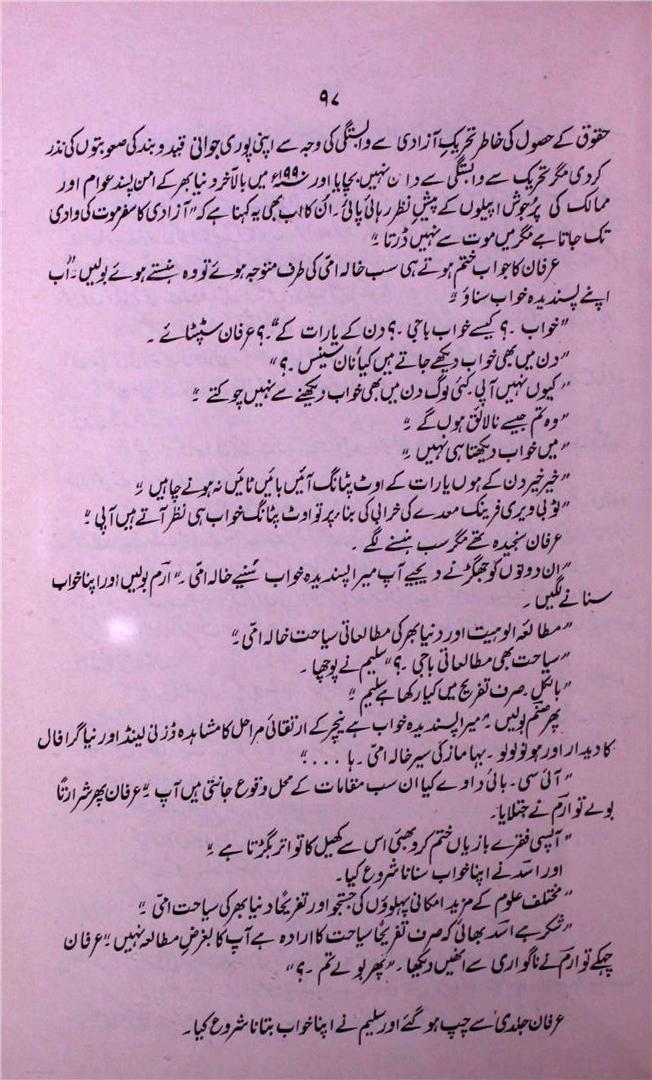 ۹۷
حقوق کے حصول کی خاطر تحریکِ آزادی سے وابستگی کی وجہ سے اپنی پوری جوانی قید و بند کی صعوبتوں کی نذر
کردی مگر تحریک سے وابستگی سے دامن نہیں بچایا اور ۱۹۹۰ء میں بالآخر دنیا بھر کے امن پسند عوام اور
ممالک کی پُرجوش اپیلوں کے پیشِ نظر رہائی پائی۔ ان کا اب بھی یہ کہنا ہے کہ "آزادی کا سفر موت کی وادی
تک جاتا ہے مگر میں موت سے نہیں ڈرتا۔"
عرفان کا جواب ختم ہوتے ہی سب خالہ امّی کی طرف متوجہ ہوئے تو وہ ہنستے ہوئے بولیں۔ "اب
اپنے پسندیدہ خواب سناؤ۔"
"خواب ۔؟ کیسے خواب باجی ۔؟ دن کے یا رات کے" ۔؟ عرفان سٹپٹائے ۔
"دن میں بھی خواب دیکھے جاتے ہیں کیا نان سینس ۔؟"
"کیوں نہیں آپی۔ کئی لوگ دن میں بھی خواب دیکھنے سے نہیں چوکتے ۔"
"وہ تم جیسے نالائق ہوں گے ۔"
"میں خواب دیکھتا ہی نہیں ۔"
"خیر خیر دن کے ہوں یا رات کے اوٹ پٹانگ آئیں بائیں ٹائیں نہ ہونے چاہیں ۔"
"ٹو بی ویری فرینک معدے کی خرابی کی بناء پر تو اوٹ پٹانگ خواب ہی نظر آتے ہیں آپی ۔"
عرفان سنجیدہ تھے مگر سب ہنسنے لگے ۔
"ان دونوں کو جھگڑنے دیجیے آپ میرا پسندیدہ خواب سُنیے خالہ امّی ۔" ارم بولیں اور اپنا خواب
سنانے لگیں ۔
"مطالعہ الوہیت اور دنیا بھر کی مطالعاتی سیاحت خالہ امّی ۔"
"سیاحت بھی مطالعاتی باجی ۔؟" سلیم نے پوچھا ۔
"بالکل ۔ صرف تفریح میں کیا رکھا ہے سلیم ۔"
پھر صنم بولیں ۔ "میرا پسندیدہ خواب ہے نیچر کے ارتقائی مراحل کا مشاہدہ ڈزنی لینڈ اور نیاگرا فال
کا دیدار اور ہونولولو ۔ بہاماز کی سیر خالہ امّی ۔ ہا . . . . ۔"
"آئی سی ۔ بائی داوے کیا ان سب مقامات کے محل وقوع جانتی ہیں آپ ۔" عرفان پھر شرارتاً
بولے تو ارم نے جتلایا۔
"آپسی فقرے بازیاں ختم کرو بھئی اس سے کھیل کا تواتر بگڑتا ہے ۔"
اور اسد نے اپنا خواب سنانا شروع کیا۔
"مختلف علوم کے مزید امکانی پہلوؤں کی جستجو اور تفریحاً دنیا بھر کی سیاحت امّی ۔"
"شکر ہے اسد بھائی کہ صرف تفریحاً سیاحت کا ارادہ ہے آپ کا بغرضِ مطالعہ نہیں ۔" عرفان
چہکے تو ارم نے ناگواری سے انھیں دیکھا ۔ "پھر بولے تم ۔؟"
عرفان جلدی سے چپ ہو گئے اور سلیم نے اپنا خواب بتانا شروع کیا ۔